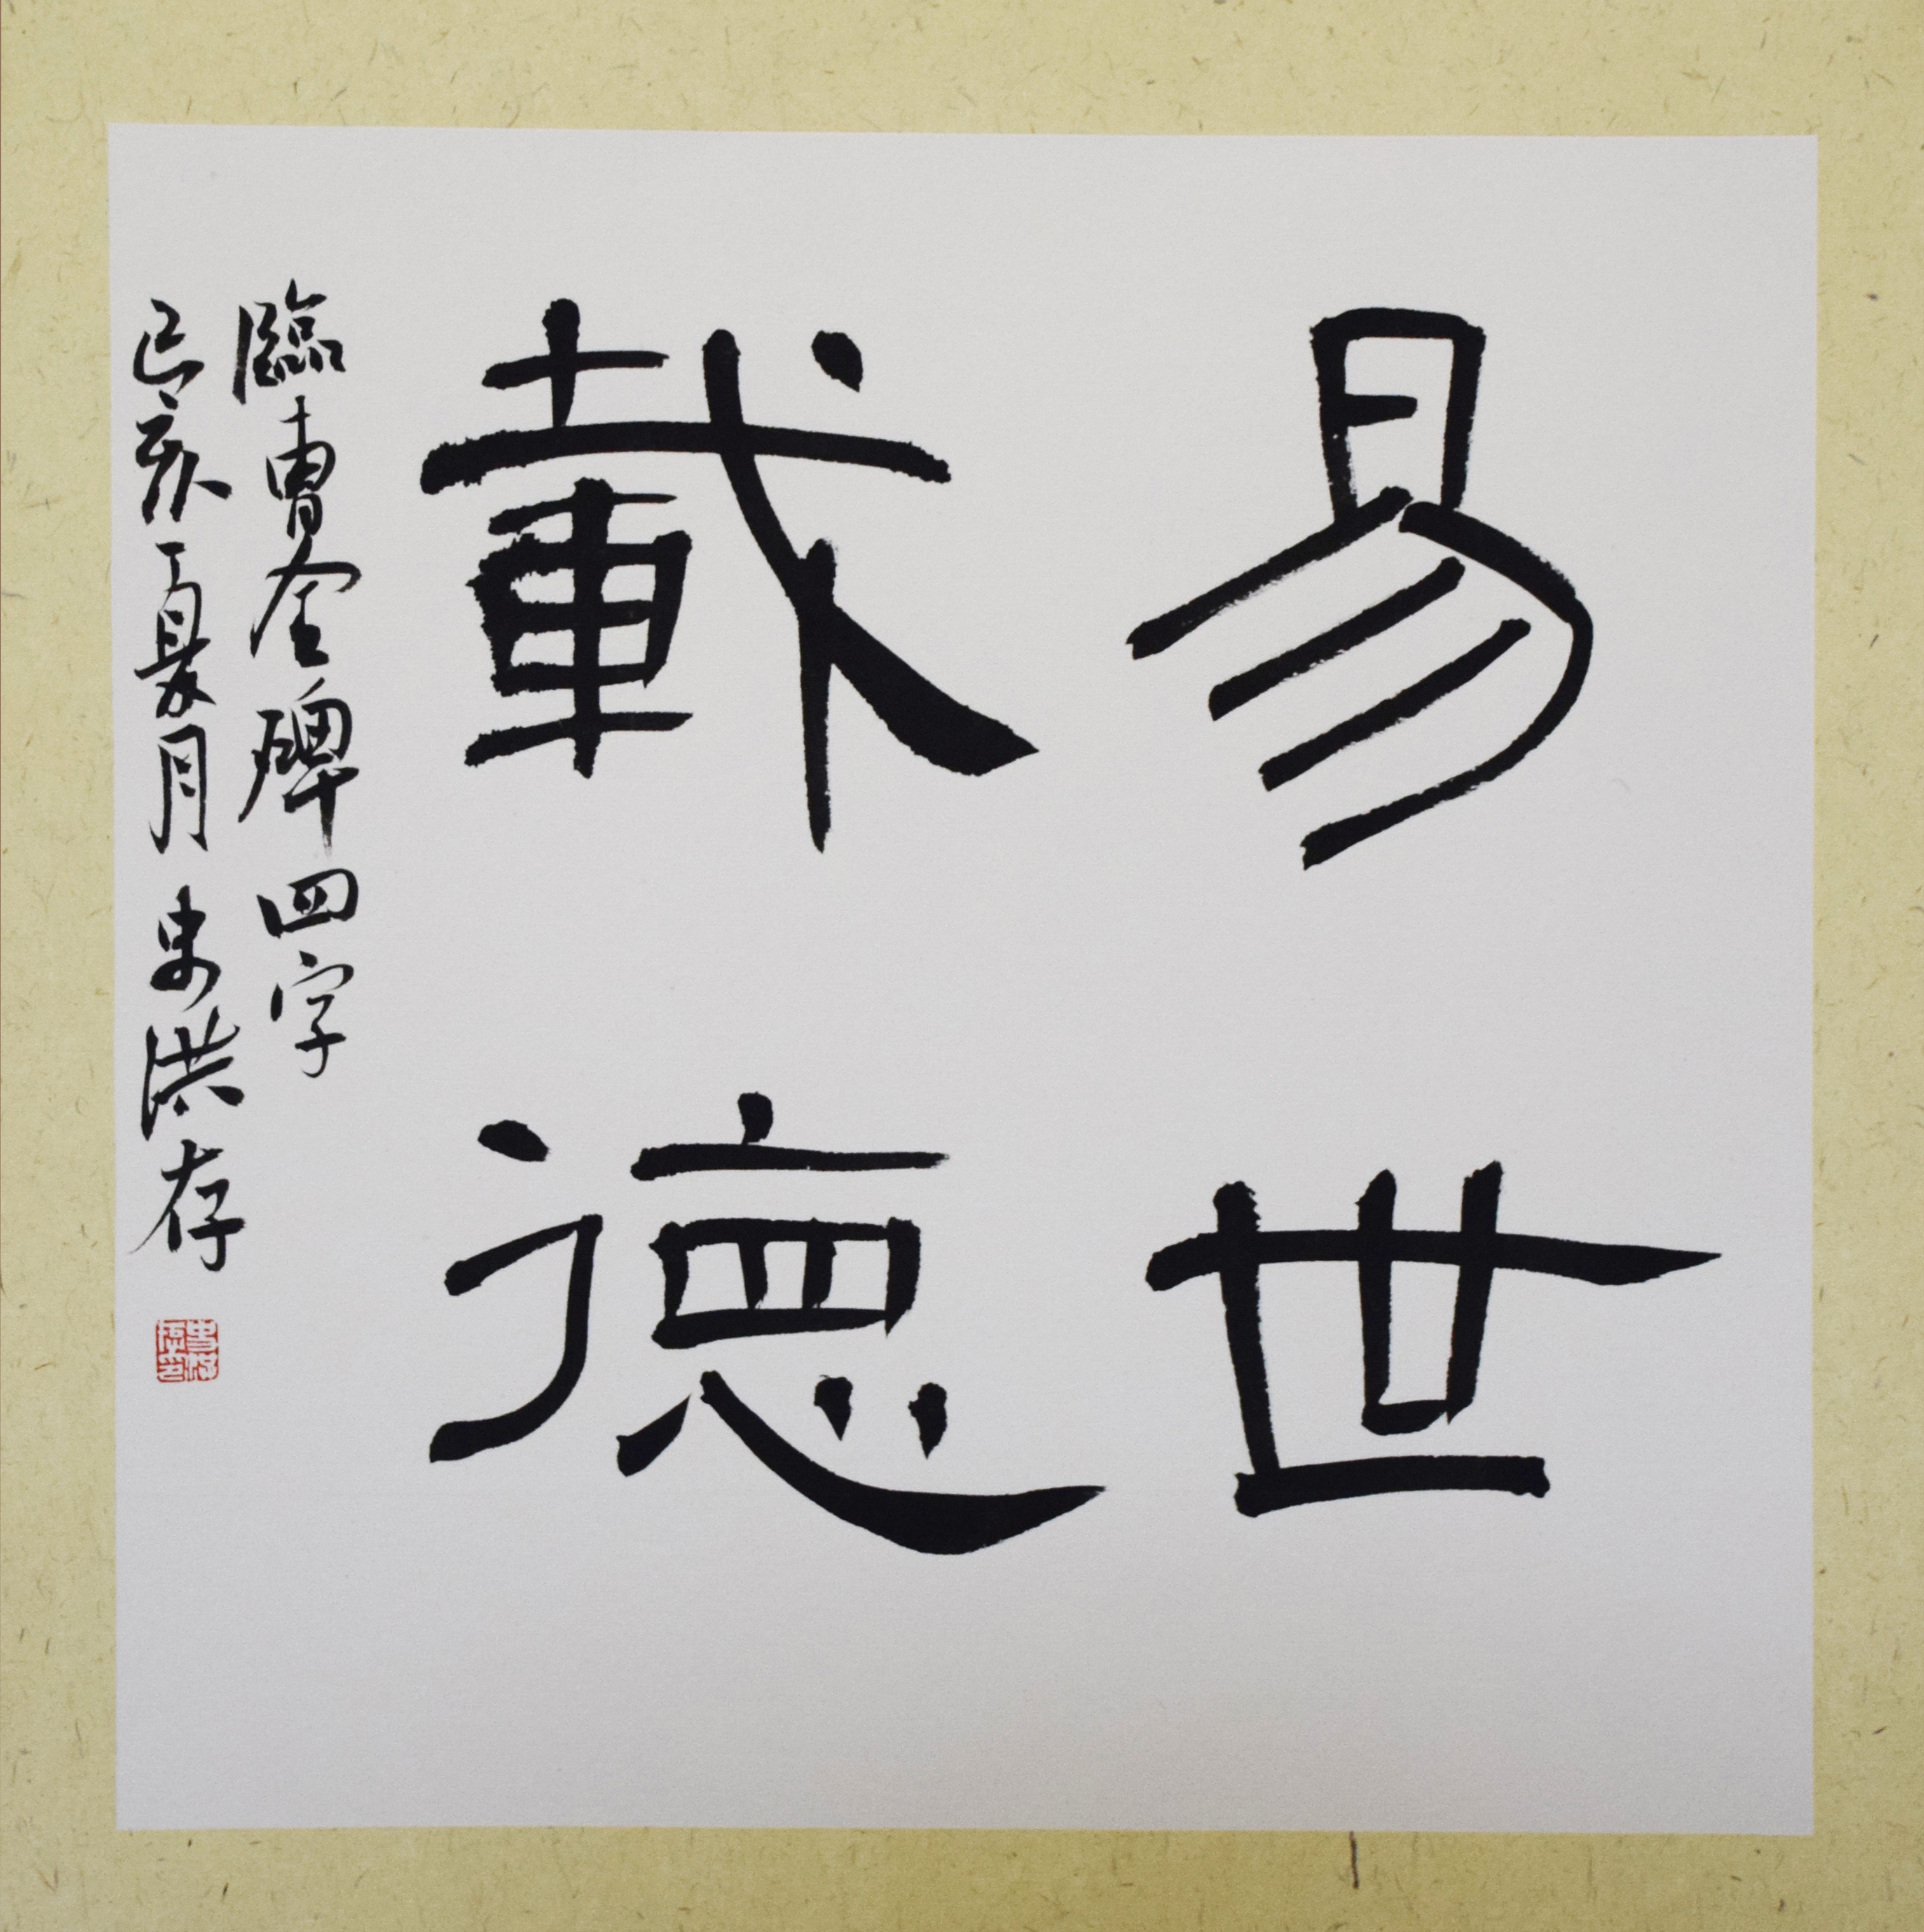 易世
載德
臨曹全碑四字
己亥夏月史洪存